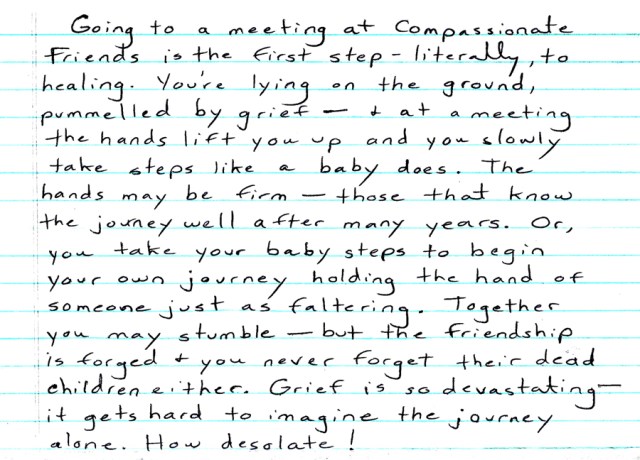 Going to a meeting at Compassionate
Friends is the first step - literally, to
healing. You're lying on the ground,
pummelled by grief — & at a meeting
the hands lift you up and you slowly
take steps like a baby does. The
hands may be firm — those that know
the journey well after many years. Or,
you take your baby steps to begin
your own journey holding the hand of
someone just as faltering. Together
you may stumble — but the friendship
is forged & you never forget their dead
children either. Grief is so devastating—
it gets hard to imagine the journey
alone. How desolate !